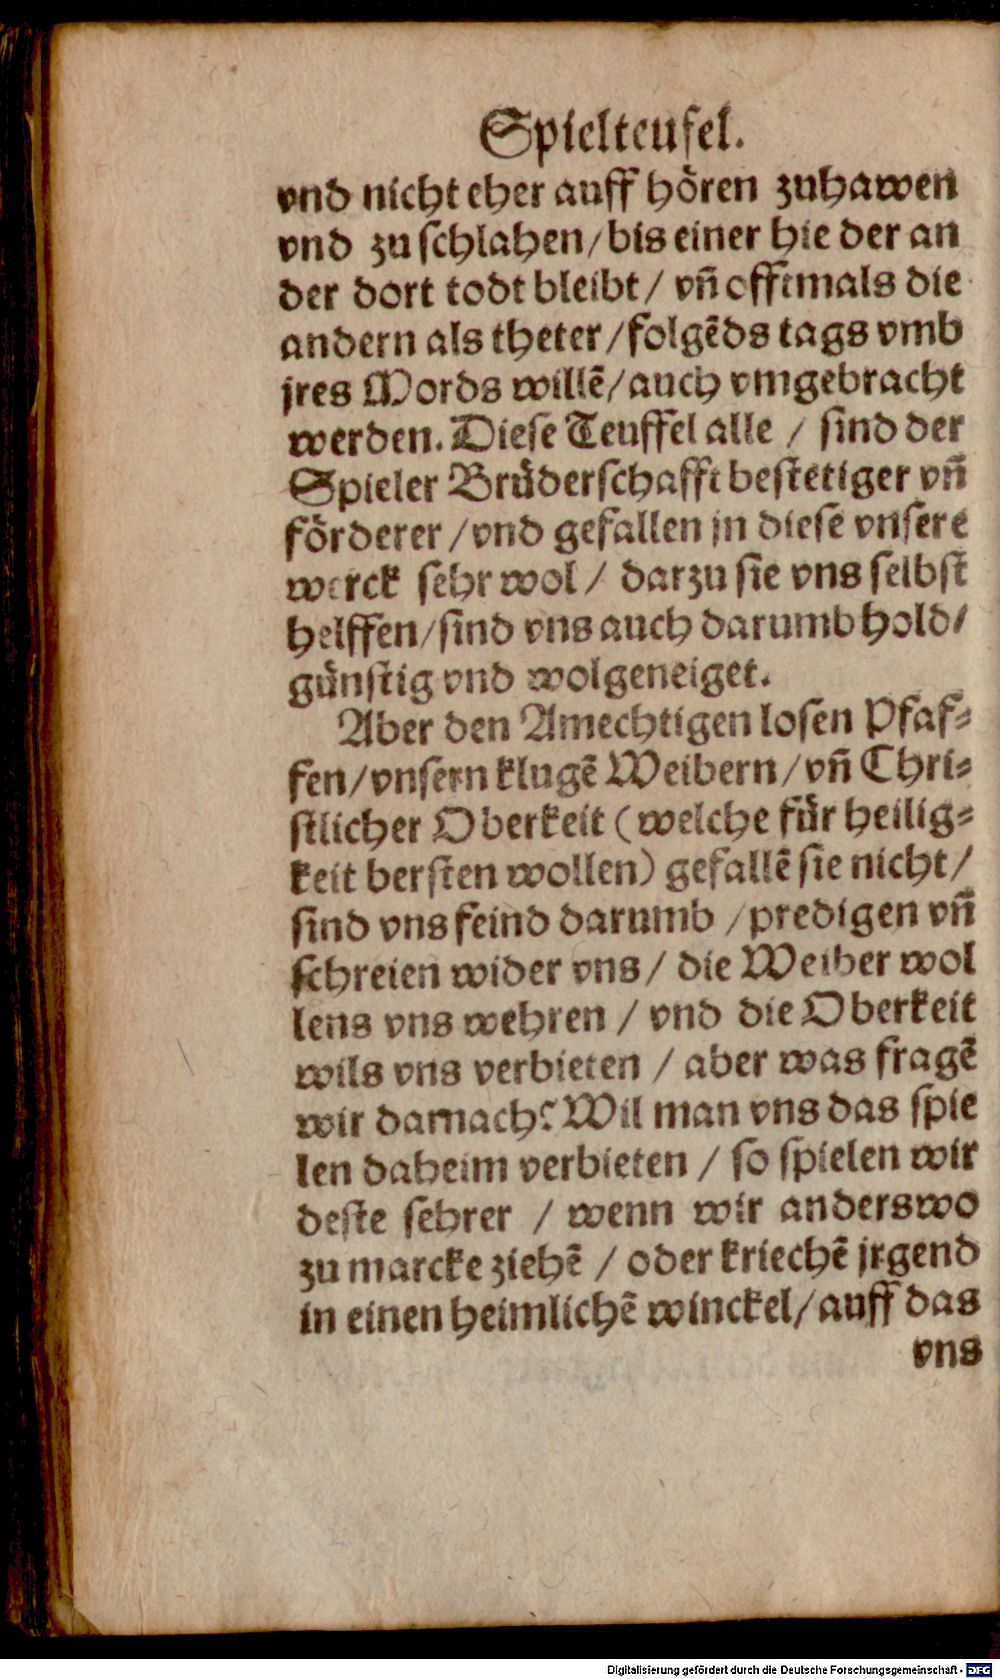 Spielteufel.
vnd nicht eher auff hören zuhawen
vnd zu schlahen/bis einer hie der an
der dort todt bleibt/ vñ offtmals die
andern als theter/folgẽds tags vmb
jres Mords willẽ/auch vmgebracht
werden. Diese Teuffel alle / sind der
Spieler Brüderschafft bestetiger vñ
förderer /vnd gefallen jn diese vnsere
werck sehr wol / darzu sie vns selbst
helffen/sind vns auch darumb hold/
günstig vnd wolgeneiget.
Aber den Amechtigen losen Pfaf-
fen/vnsern klugẽ Weibern/vñ Chri-
stlicher Oberkeit (welche für heilig-
keit bersten wollen) gefallẽ sie nicht/
sind vns feind darumb /predigen vñ
schreien wider vns/ die Weiber wol
lens vns wehren / vnd die Oberkeit
wils vns verbieten / aber was fragẽ
wir darnach? Wil man vns das spie
len daheim verbieten / so spielen wir
deste sehrer / wenn wir anderswo
zu marcke ziehẽ / oder kriechẽ jrgend
in einen heimlichẽ winckel/auff das
vns
Digitalisierung gefördert durch die Deutsche Forschungsgemeinschaft - DFG